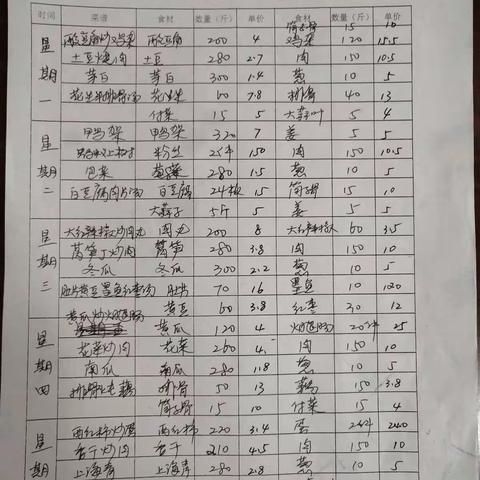 时间 菜谱 食材 数量(斤) 单价 食材 数量(斤) 单价
筒子骨 15 10
星期一 酸豆角炒鸡杂 酸豆角 200 4 鸡杂 120 15.5
土豆烧肉 土豆 280 2.7 肉 150 10.5
茅白 茅白 300 1.4 葱 10 5
花生米排骨汤 花生米 60 7.8 排骨 40 13
付菜 15 5 大蒜叶 5 4
星期二 鸭架 鸭架 320 7 姜 5 5
蚂蚁上树 粉丝 25件 150 肉 150 10.5
包菜 包菜 280 1.5 葱 10 5
白豆腐肉片汤 白豆腐 24板 15 筒子骨 15 10
大蒜子 5斤 5 姜 5 5
星期三 大红辣椒炒肉丸 肉丸 200 8 大红辣椒 60 3.5
莴笋丁炒肉 莴笋 280 3.8 肉 150 10
冬瓜 冬瓜 300 2.2 葱 10 5
肚片黄豆墨鱼红枣汤 肚片 70 16 墨鱼 10 120
黄豆 60 3.8 红枣 30 12
星期四 黄瓜炒火腿肠 黄瓜 120 4 火腿肠 20件 25
花菜炒肉 花菜 260 4. 肉 150 10
南瓜 南瓜 280 1.8 葱 10 5
排骨炖藕 排骨 50 13 藕 150 3.8
筒子骨 15 10 付菜 15 4
星期 西红柿炒蛋 西红柿 220 3.4 蛋 2件 240
香干炒肉 香干 210 4.5 肉 150 10
上海青 上海青 280 2.8 葱 10 5